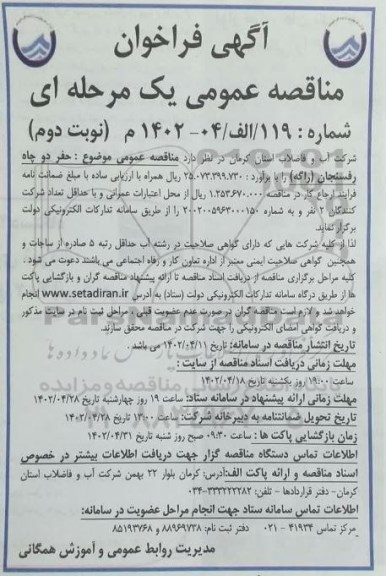 آگهی فراخوان
مناقصه عمومی یک مرحله ای
شماره : ۱۱۹/الف/۰۴- ۱۴۰۲ م (نوبت دوم)
شرکت آب و فاضلاب استان کرمان در نظر دارد مناقصه عمومی موضوع : حفر دو چاه
رفسنجان (راکه) را با برآورد : ۲۵.۰۷۳.۳۹۹.۷۳۰ ریال همراه با ارزیابی ساده با مبلغ ضمانت نامه
فرایند ارجاع کار در مناقصه ۱.۲۵۳.۶۷۰.۰۰۰ ریال از محل اعتبارات عمرانی و با حداقل تعداد شرکت
کنندگان ۲ نفر و به شماره ۲۰۰۲۰۰۵۹۶۳۰۰۰۱۵۰ را از طریق سامانه تدارکات الکترونیکی دولت
برگزار نماید.
لذا از کلیه شرکت هایی که دارای گواهی صلاحیت در رشته آب حداقل رتبه ۵ صادره از ساجات و
همچنین گواهی صلاحیت ایمنی معتبر از اداره تعاون کار و رفاه اجتماعی می باشند دعوت می شود .
کلیه مراحل برگزاری مناقصه از دریافت اسناد مناقصه تا ارائه پیشنهاد مناقصه گران و بازگشایی پاکت
ها از طریق درگاه سامانه تدارکات الکترونیکی دولت (ستاد) به آدرس www.setadiran.ir انجام
خواهد شد و لازم است مناقصه گران در صورت عدم عضویت قبلی ، مراحل ثبت نام در سایت مذکور
و دریافت گواهی امضای الکترونیکی را جهت شرکت در مناقصه محقق سازند.
تاریخ انتشار مناقصه در سامانه: تاریخ ۱۴۰۲/۰۴/۱۱ می باشد .
مهلت زمانی دریافت اسناد مناقصه از سایت :
ساعت ۱۹:۰۰ روز یکشنبه تاریخ ۱۴۰۲/۰۴/۱۸
مهلت زمانی ارائه پیشنهاد در سامانه ستاد: ساعت ۱۹ روز چهارشنبه تاریخ ۱۴۰۲/۰۴/۲۸
تاریخ تحویل ضمانتنامه به دبیرخانه شرکت: ساعت ۱۳:۰۰ تاریخ ۱۴۰۲/۰۴/۲۸
زمان بازگشایی پاکت ها : ساعت ۰۹:۳۰ صبح روز شنبه تاریخ ۱۴۰۲/۰۴/۳۱
اطلاعات تماس دستگاه مناقصه گزار جهت دریافت اطلاعات بیشتر در خصوص
اسناد مناقصه و ارائه پاکت الف:آدرس: کرمان بلوار ۲۲ بهمن شرکت آب و فاضلاب استان
کرمان- دفتر قراردادها - تلفن: ۰۳۴-۳۳۲۲۲۲۸۲
اطلاعات تماس سامانه ستاد جهت انجام مراحل عضویت در سامانه:
مرکز تماس ۴۱۹۳۴ - ۰۲۱ دفتر ثبت نام: ۸۸۹۶۹۷۳۸ و ۸۵۱۹۳۷۶۸
مدیریت روابط عمومی و آموزش همگانی